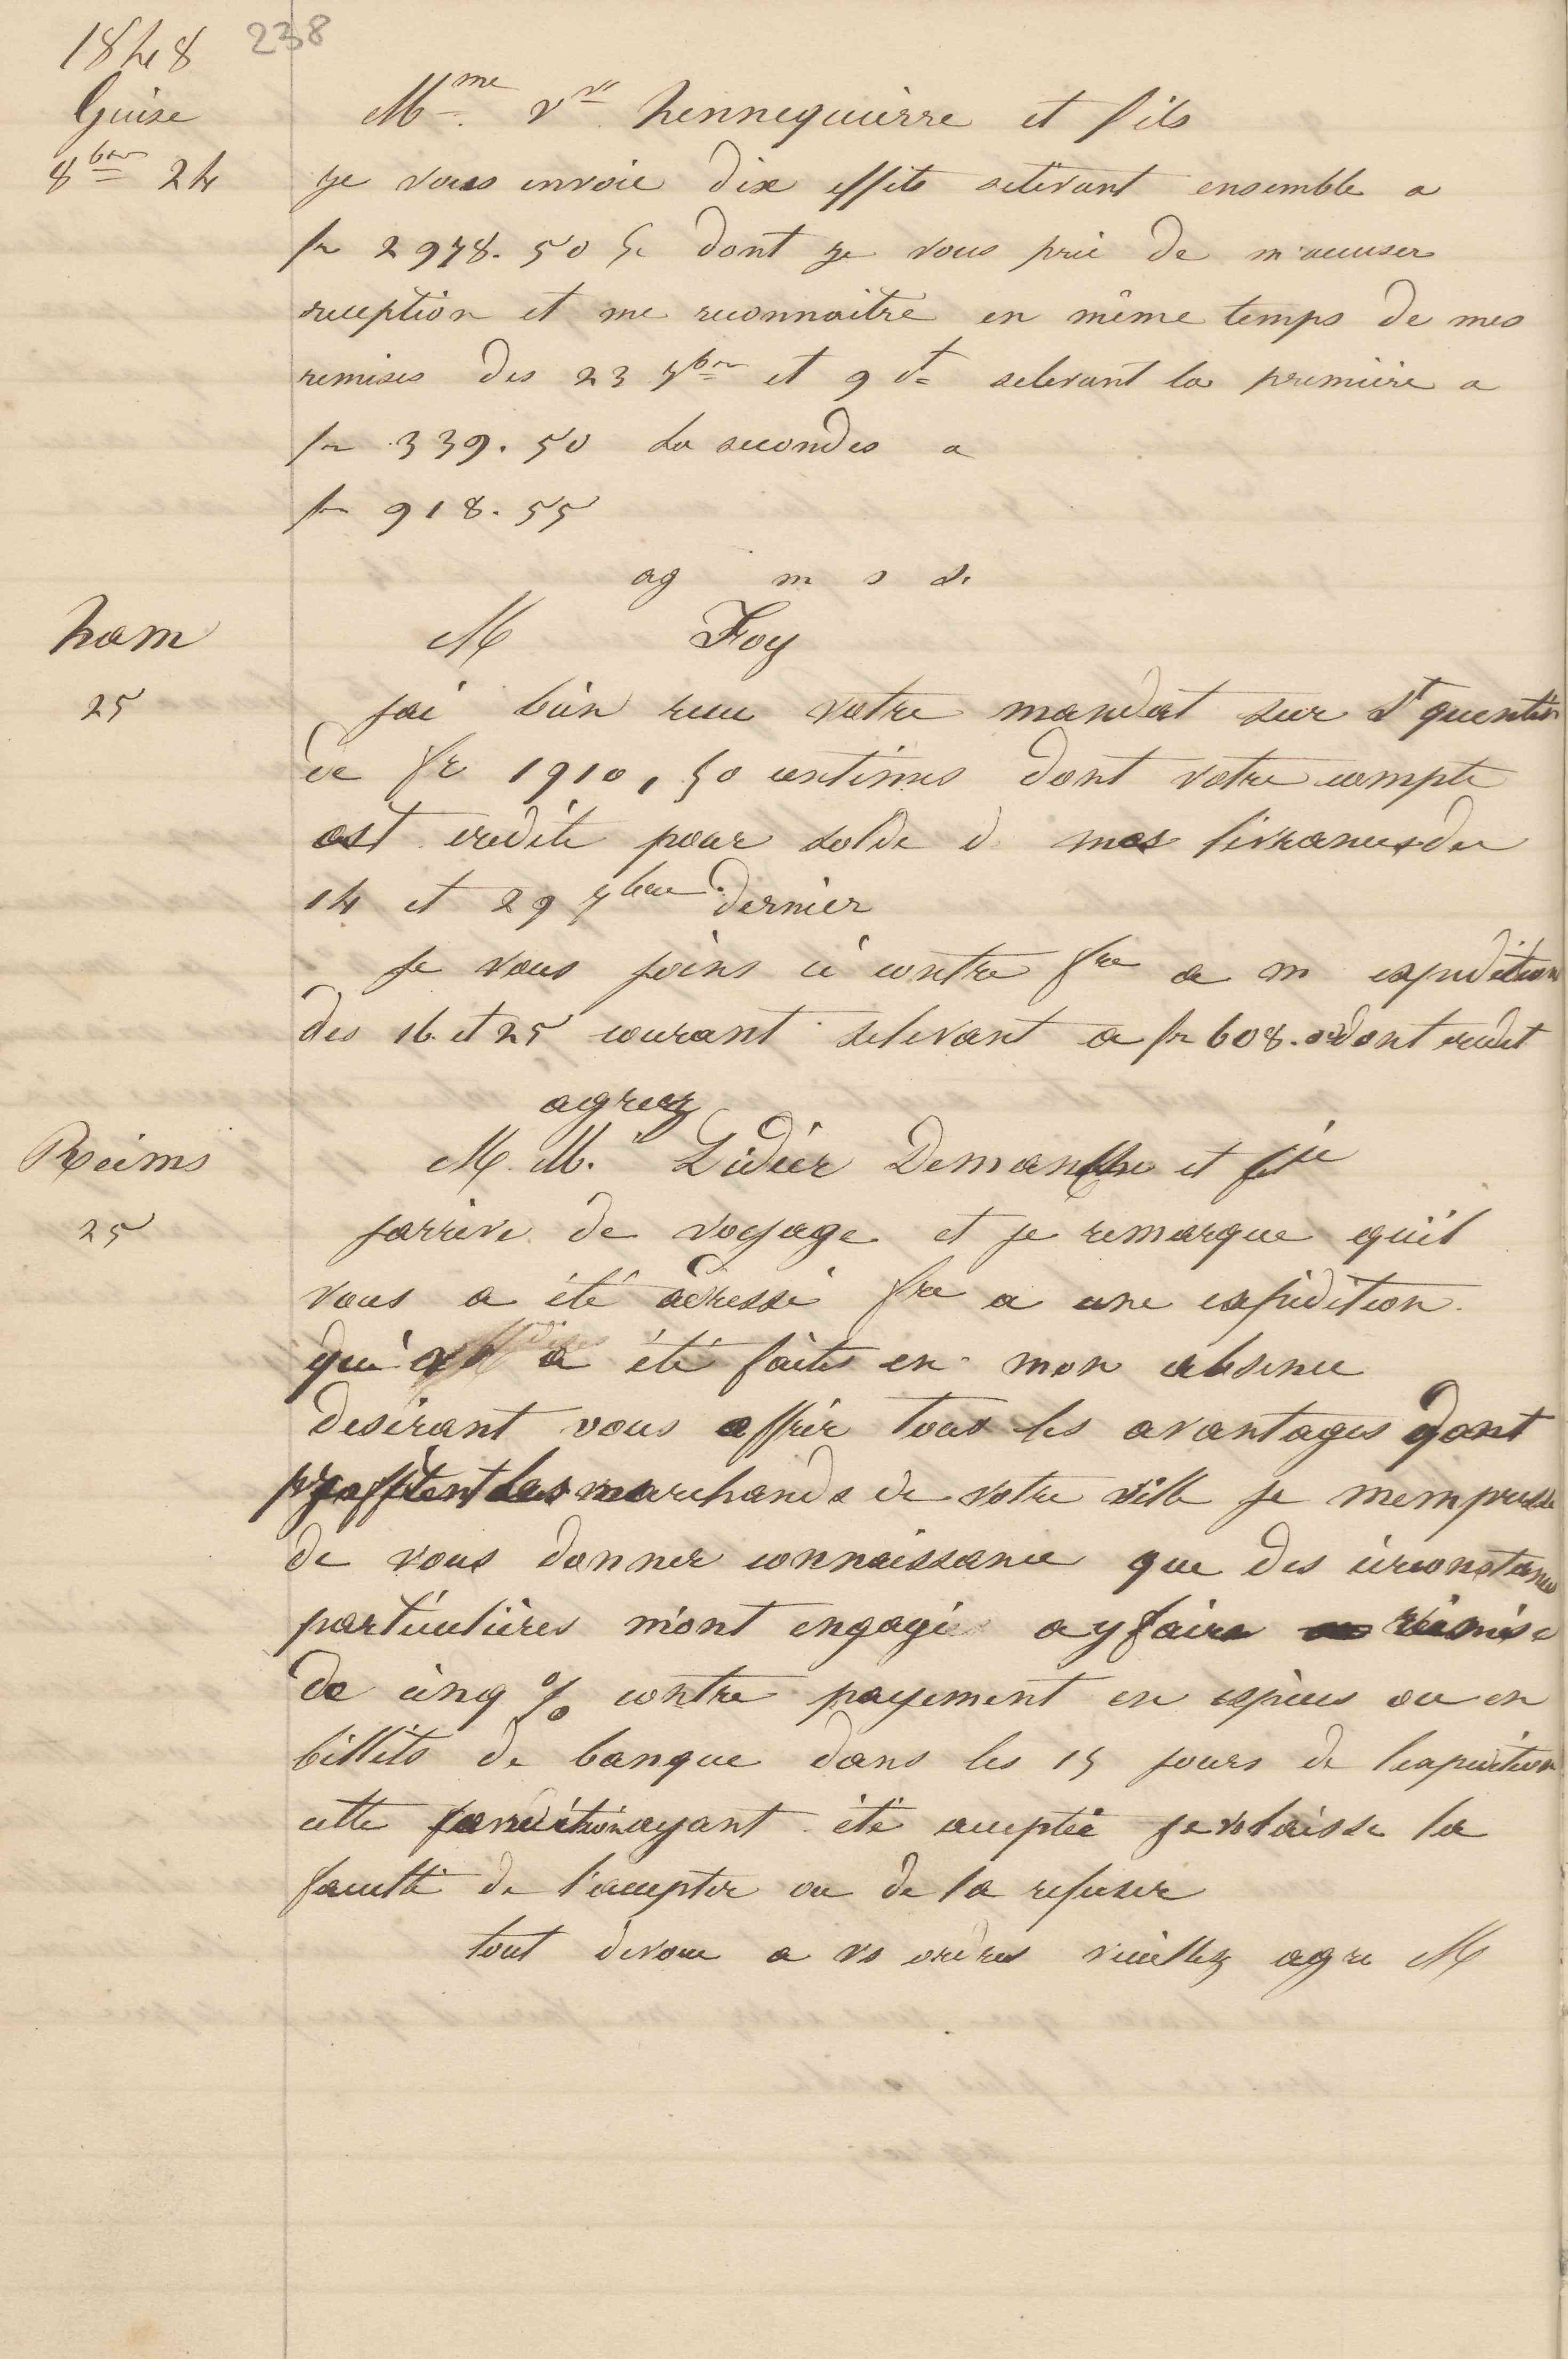 1848 238
Guise
8bre 24
Mme Vve hennequierre et fils
je vous envoie dix effets selevant ensemble a
fr 2978. 50 c dont je vous prie de m'accuser
reception et me reconnaitre en même temps de mes
remises des 23 7bre et 9 ct selevant la premiere a
fr 339. 50 la secondes a
fr 918. 55
ag m s
ham
25
M Foy
jai bien recu votre mandat sur St quentin
de fr 1910, 50 centimes dont votre compte
est credité pour solde d mes livrances du
14 et 29 7bre dernier
je vous joins ci contre fre a m expedition
des 16 et 25 courant selevant a fr 608. dont credit
agreez
Reims
25
M. M. Didier et Cie
jarrive de voyage et je remarque quil
vous a été adressé fre a une expédition
qui a été faite en mon absence
desirant vous offrir tous les avantages dont
proffitent les marchands de votre ville je mempresse
de vous donner connaissance que des circonstances
particulières m'ont engagé a y faire remise
de cinq % contre payement en espèces ou en
billets de banque dans les 15 jours de lexpedition
cette condition ayant été acceptée je vs laisse la
faculté de l'accepter ou de la refuser
tout devoue a vs ordres veuillez agre M